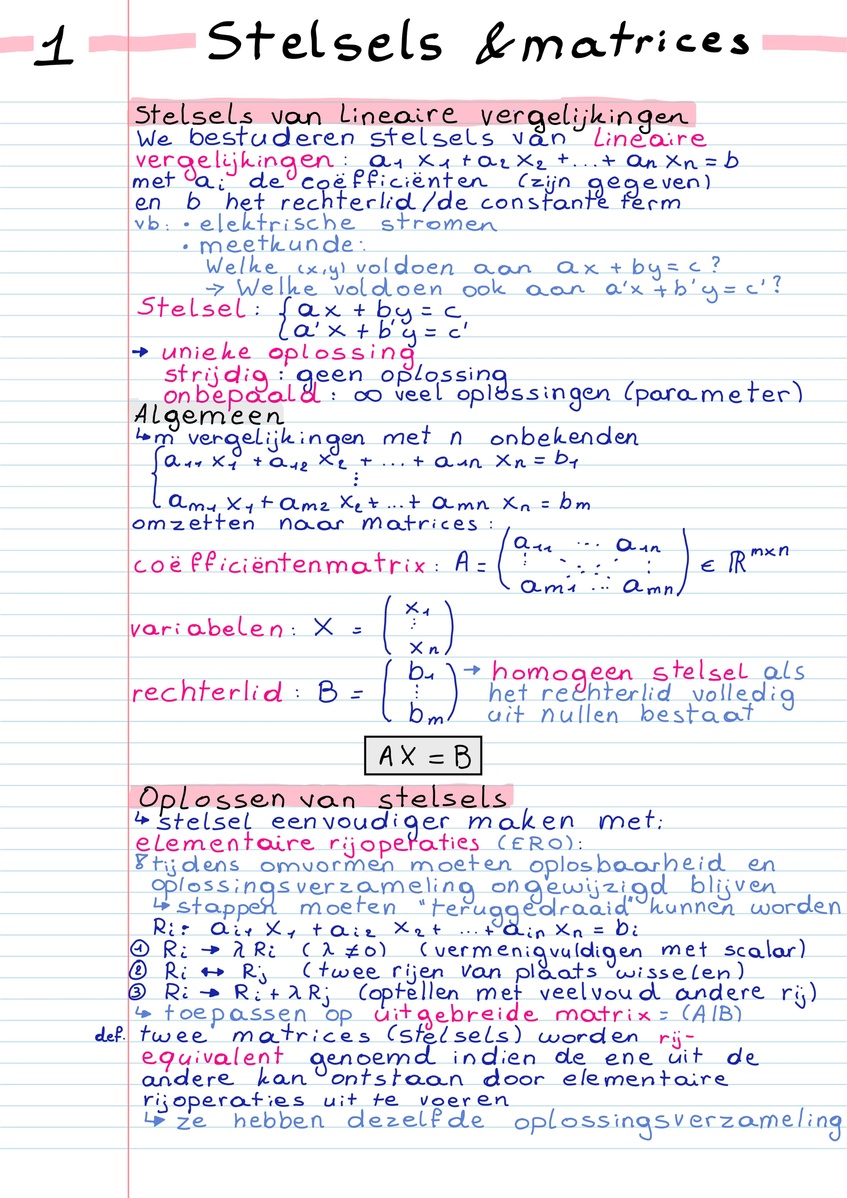 1 Stelsels & matrices
Stelsels van lineaire vergelijkingen
We bestuderen stelsels van lineaire
vergelijkingen: a₁ x₁ + a₂ x₂ + ... + aₙ xₙ = b
met aᵢ de coëfficiënten (zijn gegeven)
en b het rechterlid/de constante term
vb: • elektrische stromen
• meetkunde:
Welke (x,y) voldoen aan ax + by = c ?
→ Welke voldoen ook aan a'x + b'y = c' ?
Stelsel: { ax + by = c
{ a'x + b'y = c'
→ unieke oplossing
strijdig: geen oplossing
onbepaald: ∞ veel oplossingen (parameter)
Algemeen
↳ m vergelijkingen met n onbekenden
{ a₁₁ x₁ + a₁₂ x₂ + ... + a₁ₙ xₙ = b₁
⋮
aₘ₁ x₁ + aₘ₂ x₂ + ... + aₘₙ xₙ = bₘ
omzetten naar matrices:
coëfficiëntenmatrix: A = ( a₁₁ ... a₁ₙ
⋮ ⋱ ⋮
aₘ₁ ... aₘₙ ) ∈ ℝᵐˣⁿ
variabelen: X = ( x₁
⋮
xₙ )
rechterlid: B = ( b₁ ⋮ bₘ ) → homogeen stelsel als
het rechterlid volledig
uit nullen bestaat
AX = B
Oplossen van stelsels
↳ stelsel eenvoudiger maken met:
elementaire rijoperaties (ERO):
tijdens omvormen moeten oplosbaarheid en
oplossingsverzameling ongewijzigd blijven
↳ stappen moeten "teruggedraaid" kunnen worden
Rᵢ: aᵢ₁ x₁ + aᵢ₂ x₂ + ... + aᵢₙ xₙ = bᵢ
① Rᵢ → λRᵢ (λ ≠ 0) (vermenigvuldigen met scalar)
② Rᵢ ↔ Rⱼ (twee rijen van plaats wisselen)
③ Rᵢ → Rᵢ + λRⱼ (optellen met veelvoud andere rij)
↳ toepassen op uitgebreide matrix = (A|B)
def. twee matrices (stelsels) worden rij-
equivalent genoemd indien de ene uit de
andere kan ontstaan door elementaire
rijoperaties uit te voeren
↳ ze hebben dezelfde oplossingsverzameling